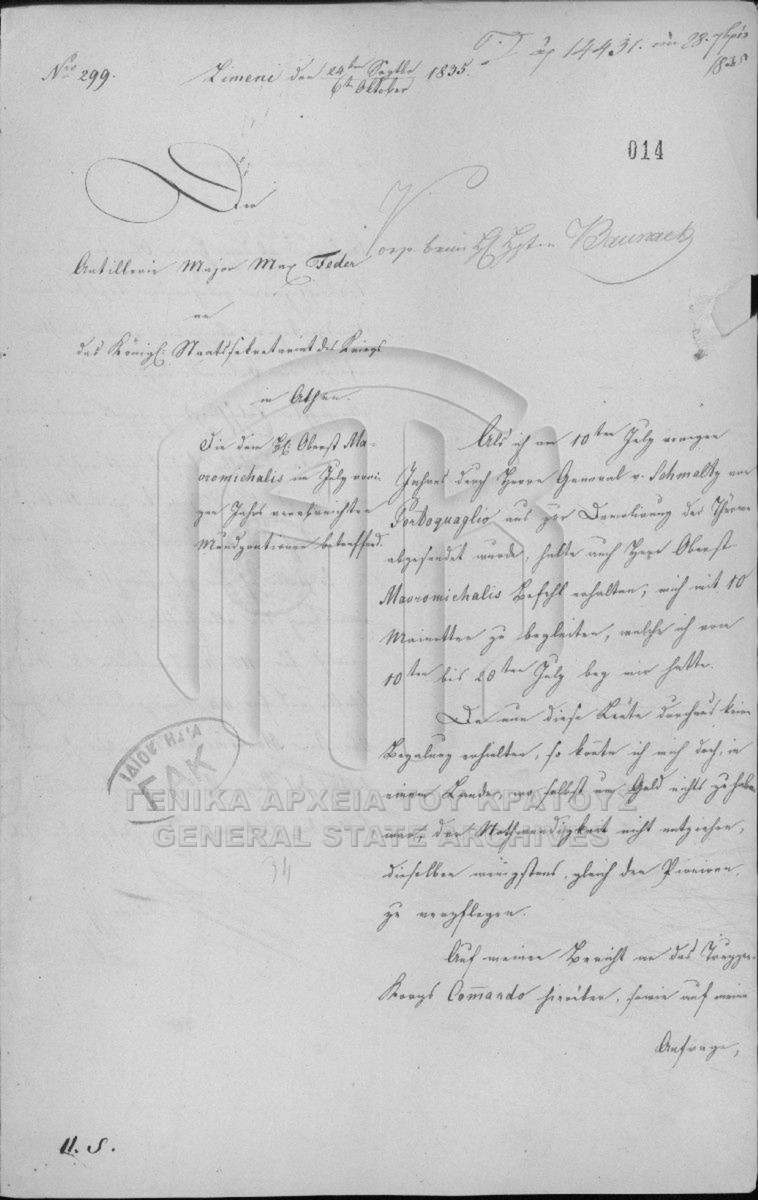 Nro 299.
Limeni den 24ten Septbr / 6ten Oktober 1835.
14431. 28. 7bris
1835
014
Der
Artillerie Major Max Feder
an
das Königl: Staatssekretariat des Kriegs
in Athen.
beim H. Hptm Baurack
Die dem H: Oberst Ma-
vromichalis im July vori-
gen Jahrs verabreichten
Mundportionen betreffend.
Als ich am 10ten July vorigen
Jahres durch Herrn General v. Schmaltz von
Portoquaglio aus zur Demolirung der Thürme
abgesendet wurde, hatte auch Herr Oberst
Mavromichalis Befehl erhalten, mich mit 10
Mainotten zu begleiten, welche ich vom
10ten bis 20ten July bey mir hatte.
Da nun diese Leute durchaus keine
Bezalung erhielten, so konte ich mich doch, in
einem Lande, wo selbst um Geld nichts zu haben
war, der Nothwendigkeit nicht entziehen,
dieselben wenigstens, gleich den Pioniren,
zu verpflegen.
Auf meinen Bericht an das Truppen-
Korps Commando hierüber, sowie auf meine
Anfrage,
ΓΑΚ
ΓΕΝΙΚΑ ΑΡΧΕΙΑ ΤΟΥ ΚΡΑΤΟΥΣ
GENERAL STATE ARCHIVES
34
11. S.